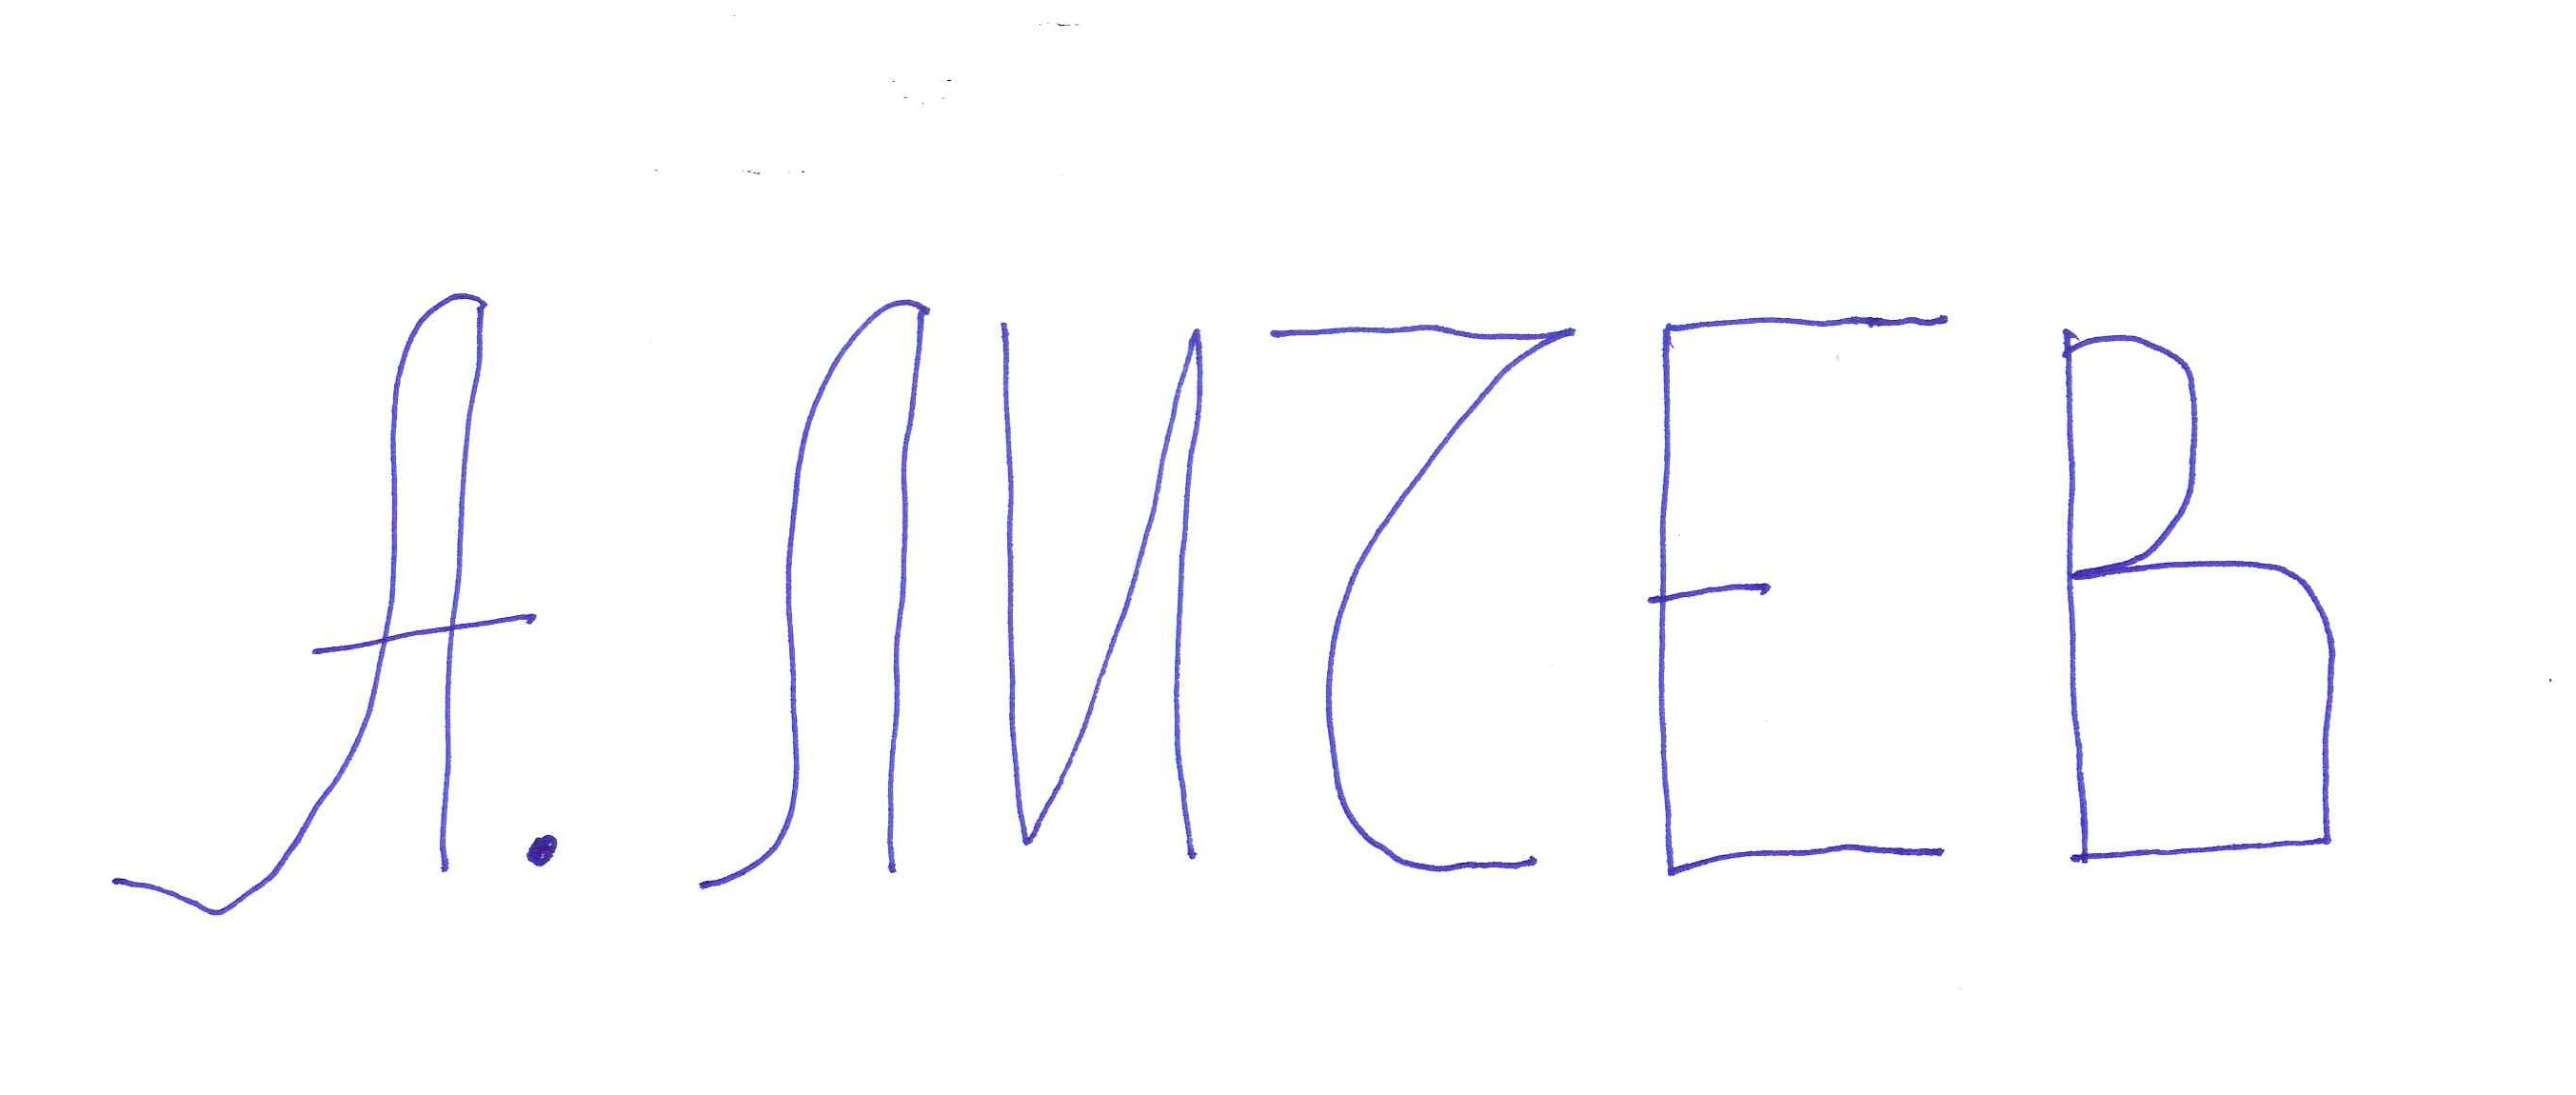 А. ЛИZЕВ